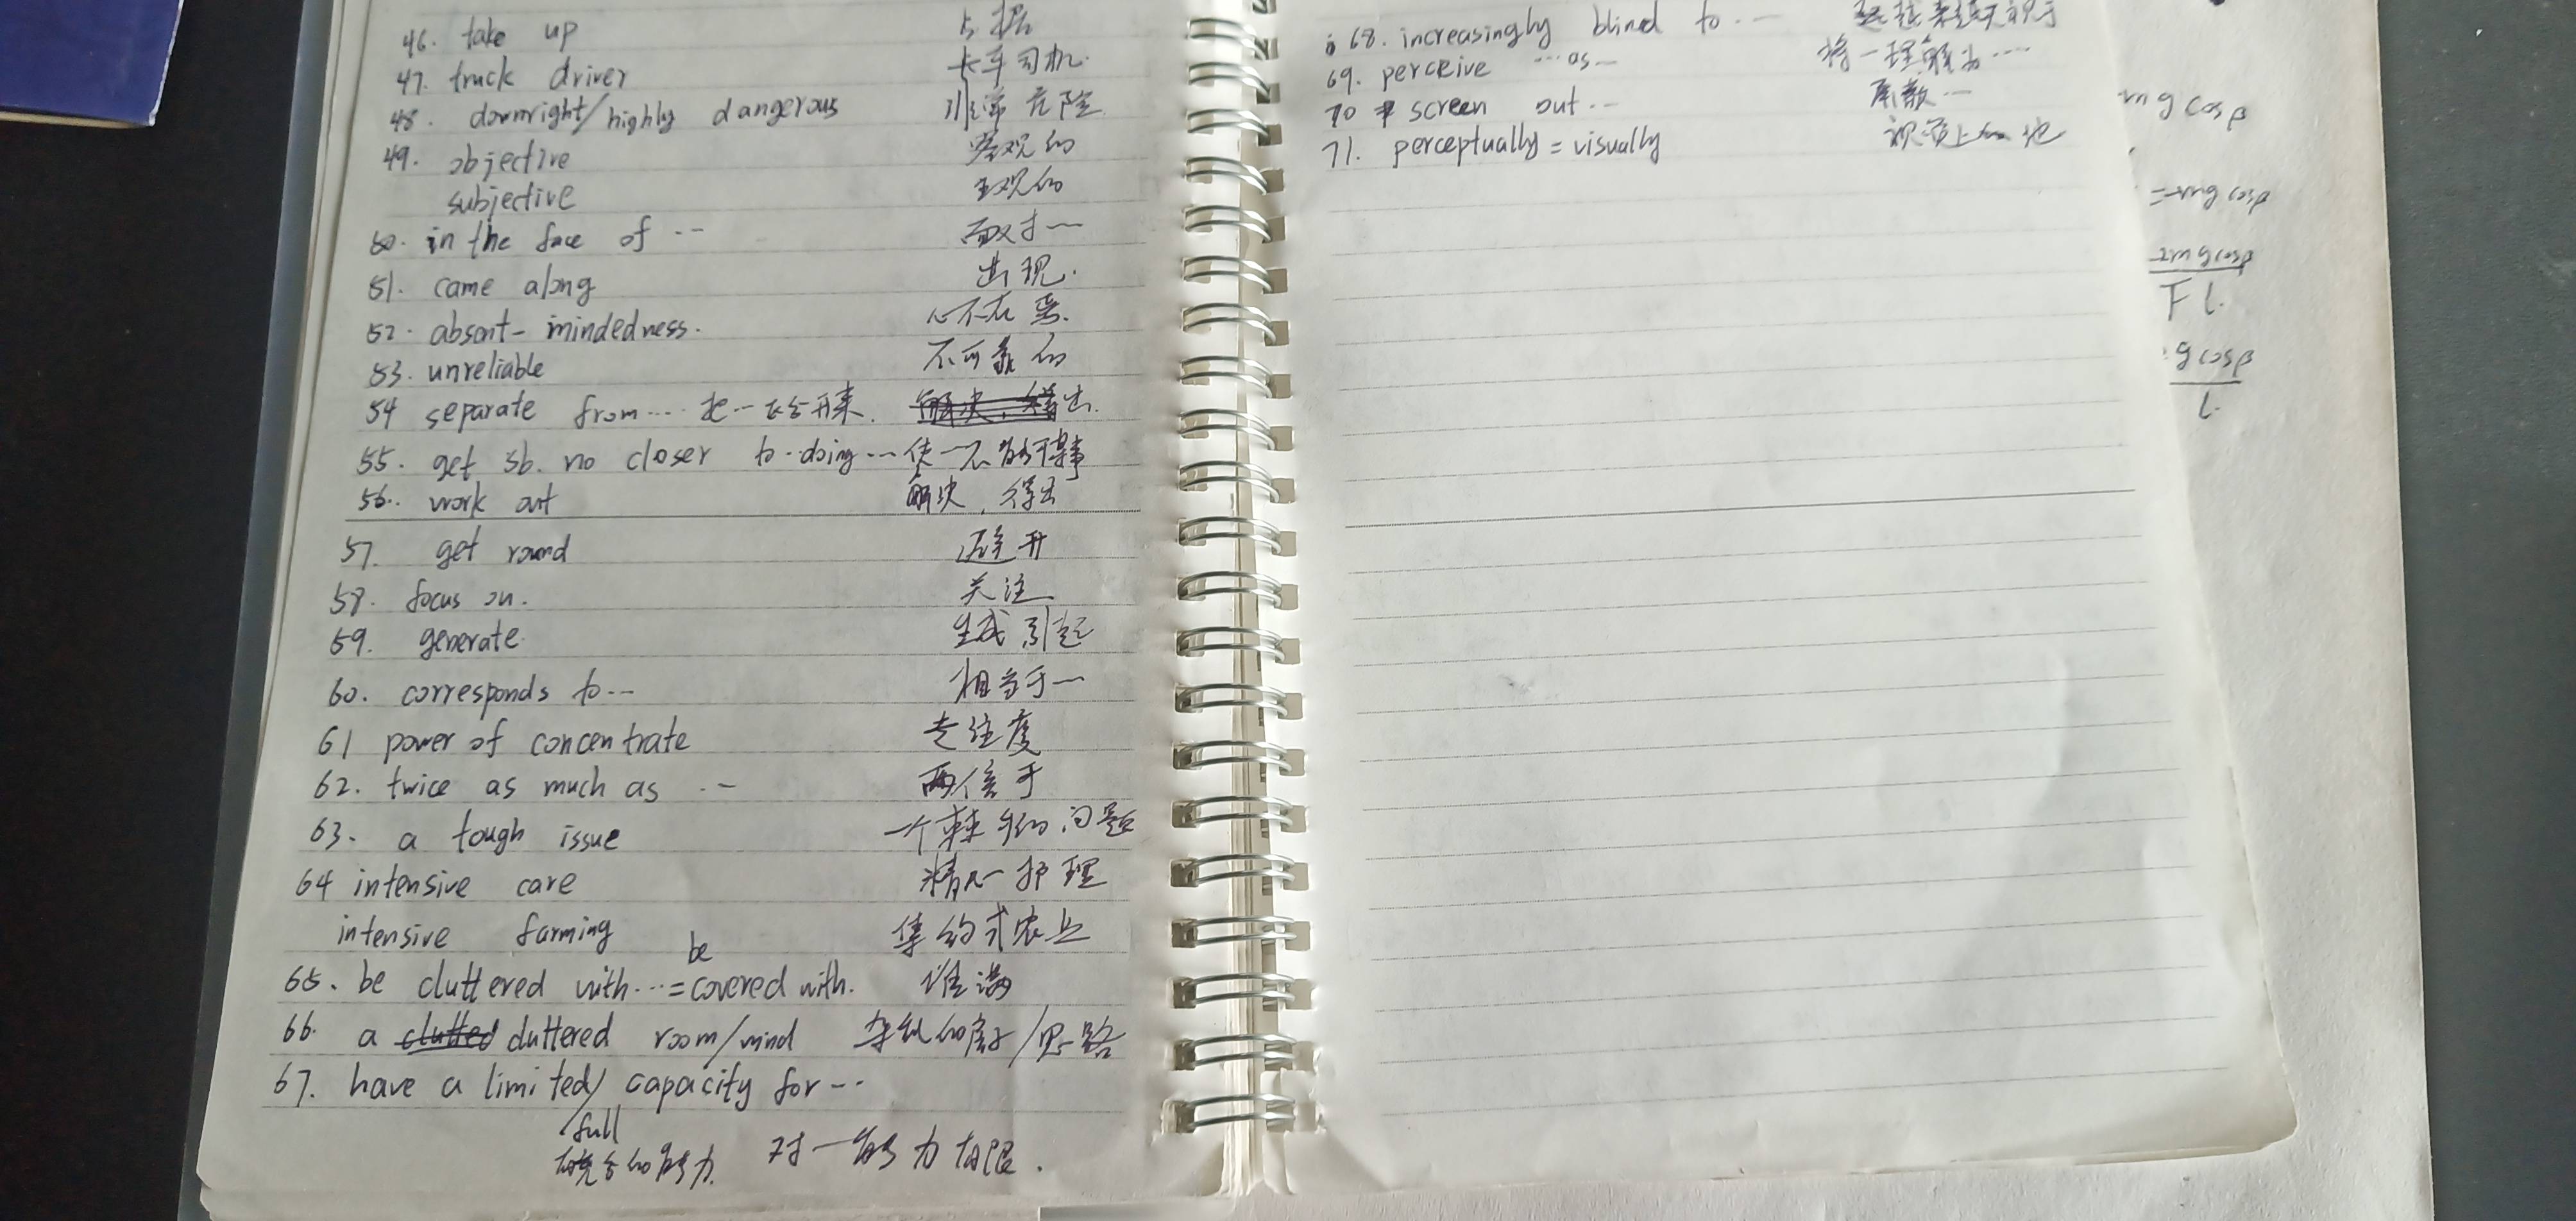 46. take up 占据
47. truck driver 卡车司机.
48. downright/highly dangerous 非常危险
49. objective 客观的
subjective 主观的
60. in the face of ... 面对...
51. came along 出现.
52. absont-mindedness. 心不在焉.
53. unreliable 不可靠的
54 separate from... 把...区分开来.
55. get sb. no closer to doing... 使...不能干某事
56. work out 解决, 得出
57. get round 避开
58. focus on. 关注
59. generate 生成,引起
60. corresponds to... 相当于...
61 power of concentrate 专注度
62. twice as much as ... 两倍于
63. a tough issue 一个棘手的问题
64 intensive care 精心护理
intensive farming 集约式农业
65. be cluttered with...= be covered with. 堆满
66. a cluttered room/mind 杂乱的房子/思路
67. have a limited/ capacity for...
full
能力 对...能力有限.
68. increasingly blind to...
69. perceive ...as... 将...理解为....
70 screen out...
71. perceptually = visually 视觉上 地
mg cosβ
=mg cosβ
2mg cosβ
F l.
g cosβ
l.